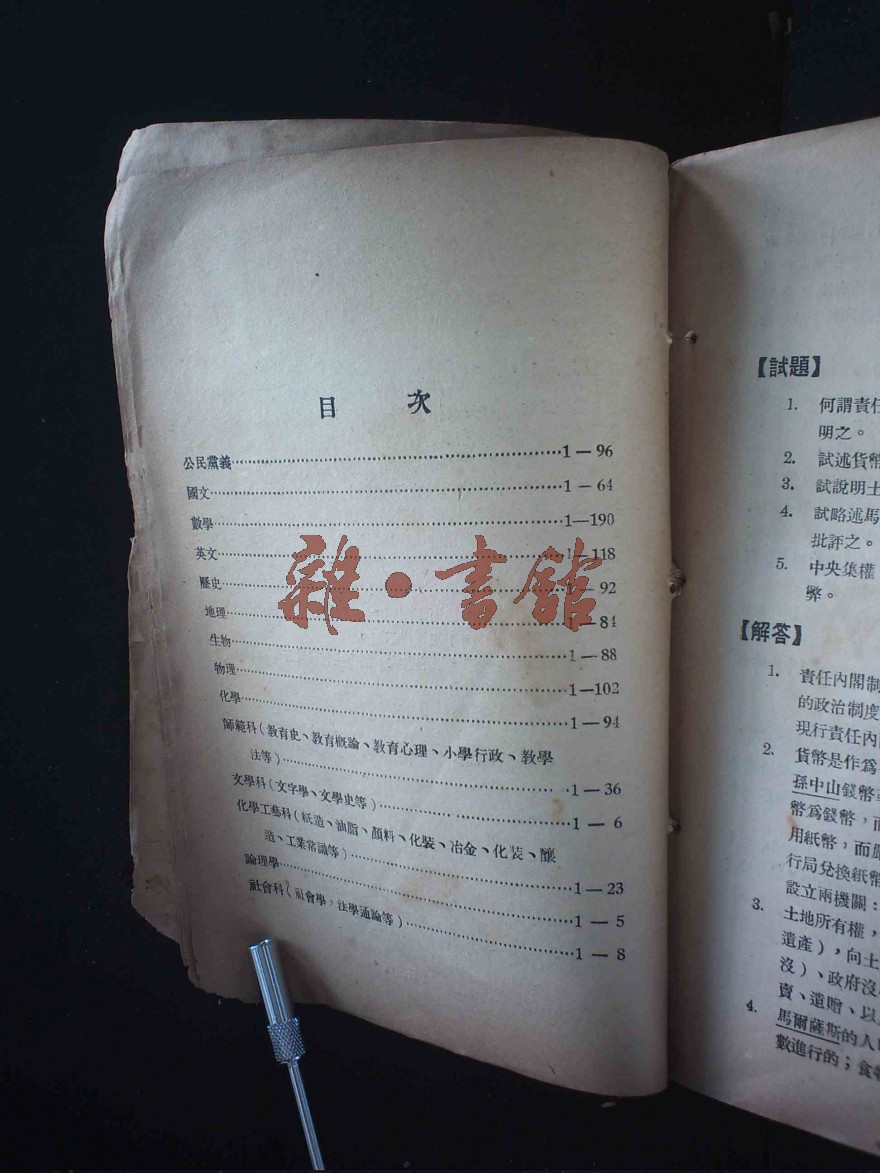 目 次
公民黨義……1—96
國文……1—64
數學……1—190
英文……1—118
歷史……1—92
地理……1—84
生物……1—88
物理……1—102
化學……1—94
師範科(教育史、教育概論、教育心理、小學行政、教學
法等)……1—36
文學科(文字學、文學史等)……1—6
化學工藝科(紙造、油脂、顏料、化裝、冶金、化裝、釀
造、工業常識等)……1—23
論理學……1—5
社會科(社會學,法學通論等)……1—8
雜·書館
【試題】
1. 何謂責任
明之。
2. 試述貨幣
3. 試說明土
4. 試略述馬
批評之。
5. 中央集權
弊。
【解答】
1. 責任內閣制
的政治制度
現行責任內
2. 貨幣是作爲
孫中山錢幣
幣爲錢幣,而
用紙幣,而
行局兌換紙幣
設立兩機關:
3. 土地所有權,
遺產),向土
沒)、政府沒
賣、遺贈、以
4. 馬爾薩斯的人
數進行的;食